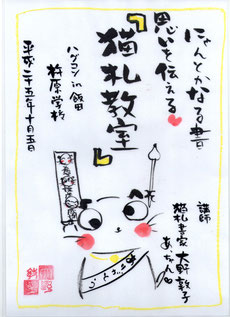 にゃんとかなる書
思いを伝える
『猫札教室』
ハグコン in 飯田
杵原学校
平成二十五年十月五日
講師
猫札書家 大野敦子
あっちゃん